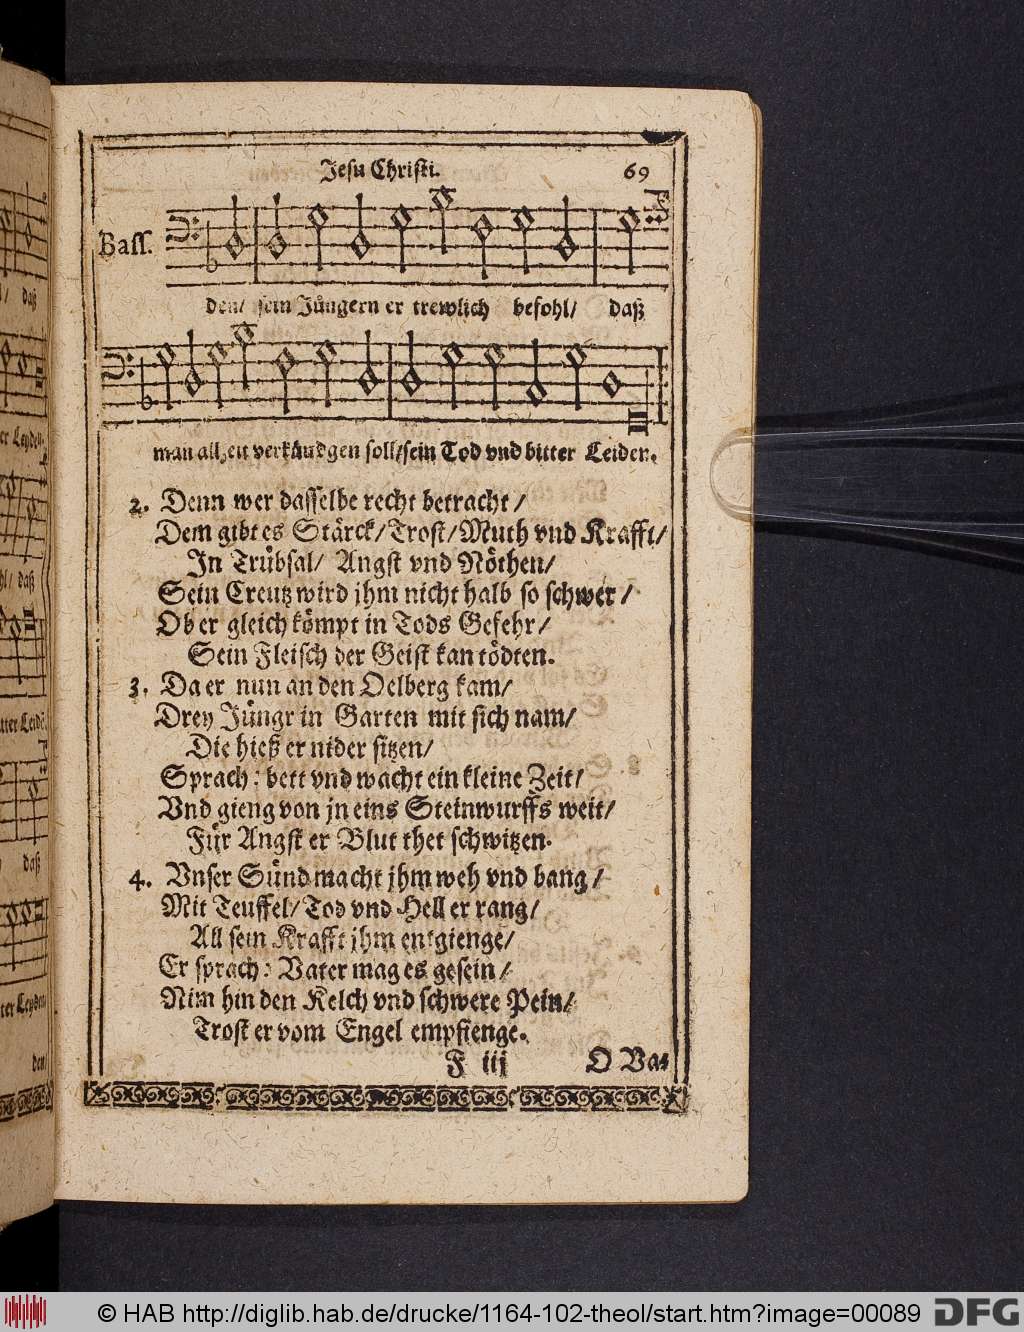 Jesu Christi. 69
Bass.
den/ sein Jüngern er trewlich befohl/ daß
man allzeit verkündgen soll/sein Tod vnd bitter Leiden.
2. Denn wer dasselbe recht betracht/
Dem gibt es Stärck/Trost/Muth vnd Krafft/
In Trübsal/ Angst vnd Nöthen/
Sein Creutz wird jhm nicht halb so schwer/
Ob er gleich kömpt in Tods Gefehr/
Sein Fleisch der Geist kan tödten.
3. Da er nun an den Oelberg kam/
Drey Jüngr in Garten mit sich nam/
Die hieß er nider sitzen/
Sprach: bett vnd wacht ein kleine Zeit/
Vnd gieng von jn eins Steinwurffs weit/
Für Angst er Blut thet schwitzen.
4. Vnser Sünd macht jhm weh vnd bang/
Mit Teuffel/Tod vnd Hell er rang/
All sein Krafft jhm entgienge/
Er sprach: Vater mag es gesein/
Nim hin den Kelch vnd schwere Pein/
Trost er vom Engel empfienge.
F iij O Va-
© HAB http://diglib.hab.de/drucke/1164-102-theol/start.htm?image=00089 DFG